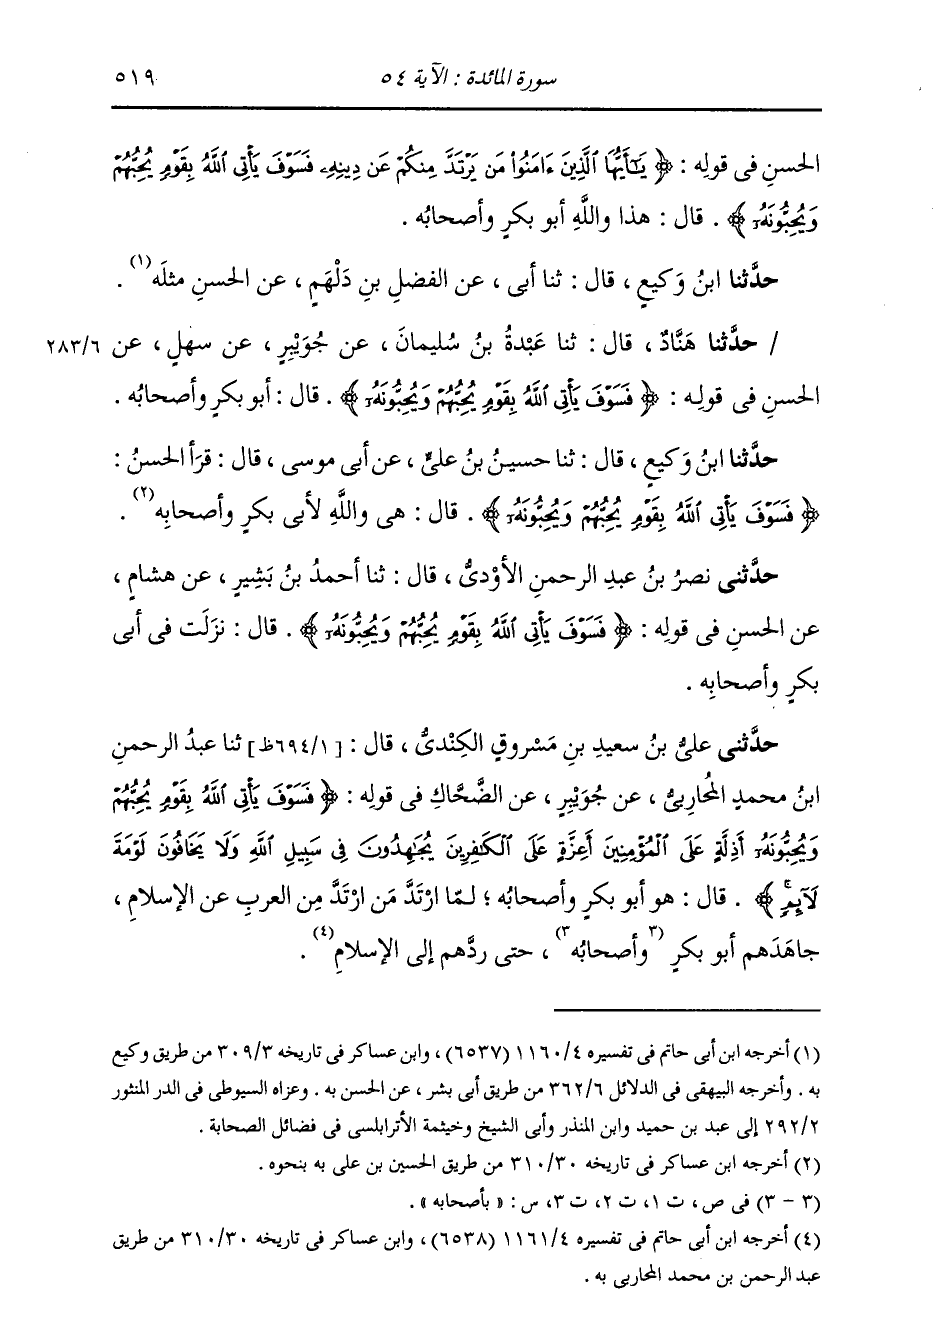 سورة المائدة : الآية ٥٤ ٥١٩
الحسنِ فى قولِه : ﴿ يَٰٓأَيُّهَا ٱلَّذِينَ ءَامَنُوا۟ مَن يَرْتَدَّ مِنكُمْ عَن دِينِهِۦ فَسَوْفَ يَأْتِى ٱللَّهُ بِقَوْمٍ يُحِبُّهُمْ
وَيُحِبُّونَهُۥٓ ﴾ . قال : هذا واللَّهِ أبو بكرٍ وأصحابُه .
حدَّثنا ابنُ وَكيعٍ ، قال : ثنا أبى ، عن الفضلِ بنِ دَلْهَمٍ ، عن الحسنِ مثلَه (١) .
/ حدَّثنا هَنَّادٌ ، قال : ثنا عَبْدةُ بنُ سُليمانَ ، عن جُوَيْبِرٍ ، عن سهلٍ ، عن ٢٨٣/٦
الحسنِ فى قولِه : ﴿ فَسَوْفَ يَأْتِى ٱللَّهُ بِقَوْمٍ يُحِبُّهُمْ وَيُحِبُّونَهُۥٓ ﴾ . قال : أبو بكرٍ وأصحابُه .
حدَّثنا ابنُ وَكيعٍ ، قال : ثنا حسينُ بنُ علىٍّ ، عن أبى موسى ، قال : قرَأ الحسنُ :
﴿ فَسَوْفَ يَأْتِى ٱللَّهُ بِقَوْمٍ يُحِبُّهُمْ وَيُحِبُّونَهُۥٓ ﴾ . قال : هى واللَّهِ لأبى بكرٍ وأصحابِه (٢) .
حدَّثنى نصرُ بنُ عبدِ الرحمنِ الأوْدىُّ ، قال : ثنا أحمدُ بنُ بَشيرٍ ، عن هشامٍ ،
عن الحسنِ فى قولِه : ﴿ فَسَوْفَ يَأْتِى ٱللَّهُ بِقَوْمٍ يُحِبُّهُمْ وَيُحِبُّونَهُۥٓ ﴾ . قال : نزَلَت فى أبى
بكرٍ وأصحابِه .
حدَّثنى علىُّ بنُ سعيدِ بنِ مَسْروقٍ الكِنْدىُّ ، قال : [ ٦٩٤/١ظ ] ثنا عبدُ الرحمنِ
ابنُ محمدٍ المُحاربىُّ ، عن جُوَيْبِرٍ ، عن الضَّحَّاكِ فى قولِه : ﴿ فَسَوْفَ يَأْتِى ٱللَّهُ بِقَوْمٍ يُحِبُّهُمْ
وَيُحِبُّونَهُۥٓ أَذِلَّةٍ عَلَى ٱلْمُؤْمِنِينَ أَعِزَّةٍ عَلَى ٱلْكَٰفِرِينَ يُجَٰهِدُونَ فِى سَبِيلِ ٱللَّهِ وَلَا يَخَافُونَ لَوْمَةَ
لَآئِمٍ ۚ ﴾ . قال : هو أبو بكرٍ وأصحابُه ؛ لمّا ارْتَدَّ مَن ارْتَدَّ مِن العربِ عن الإسلامِ ،
جاهَدَهم أبو بكرٍ (٣ وأصحابُه ٣) ، حتى ردَّهم إلى الإسلامِ (٤) .
(١) أخرجه ابن أبى حاتم فى تفسيره ١١٦٠/٤ (٦٥٣٧) ، وابن عساكر فى تاريخه ٣٠٩/٣ من طريق وكيع
به . وأخرجه البيهقى فى الدلائل ٣٦٢/٦ من طريق أبى بشر ، عن الحسن به . وعزاه السيوطى فى الدر المنثور
٢٩٢/٢ إلى عبد بن حميد وابن المنذر وأبى الشيخ وخيثمة الأترابلسى فى فضائل الصحابة .
(٢) أخرجه ابن عساكر فى تاريخه ٣١٠/٣٠ من طريق الحسين بن على به بنحوه .
(٣ - ٣) فى ص ، ت ١ ، ت ٢ ، ت ٣ ، س : « بأصحابه » .
(٤) أخرجه ابن أبى حاتم فى تفسيره ١١٦١/٤ (٦٥٣٨) ، وابن عساكر فى تاريخه ٣١٠/٣٠ من طريق
عبد الرحمن بن محمد المحاربى به .